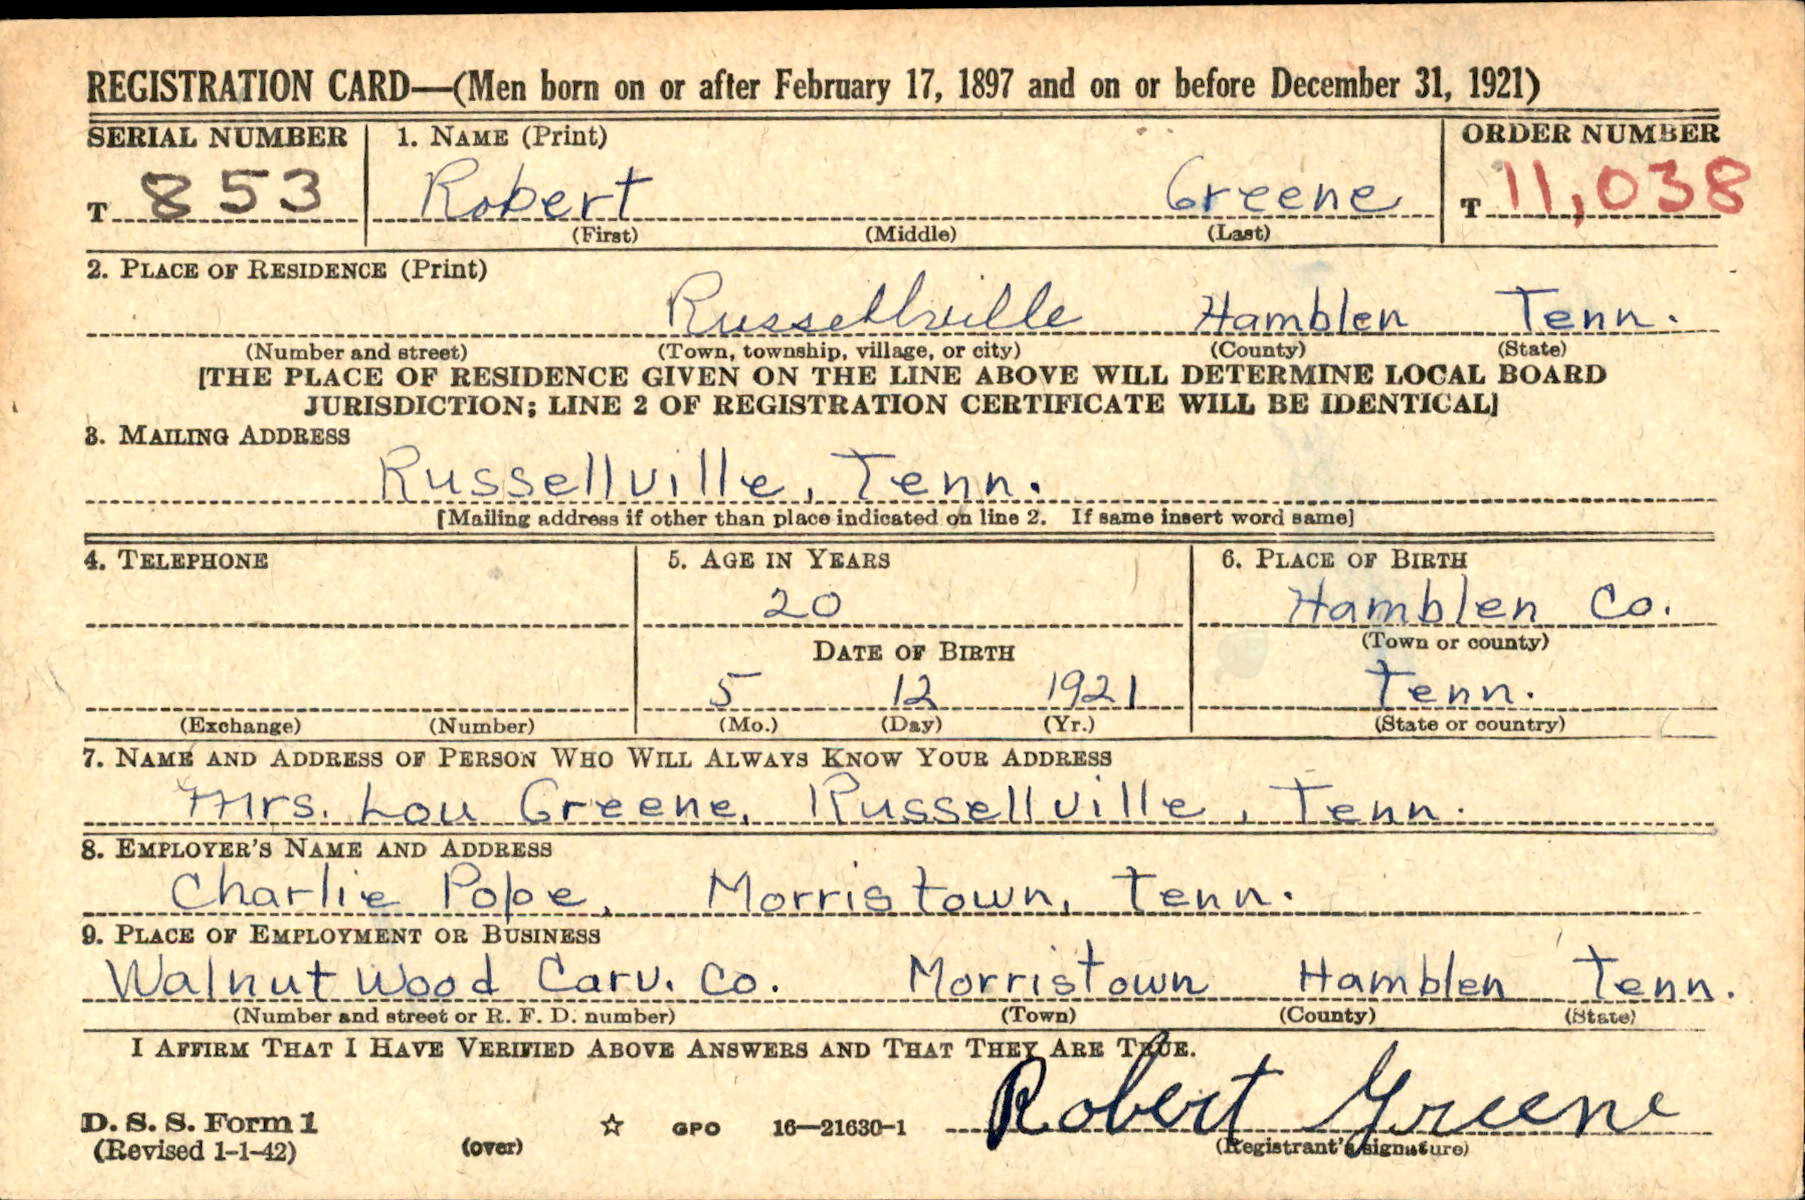 REGISTRATION CARD—(Men born on or after February 17, 1897 and on or before December 31, 1921)
SERIAL NUMBER 1. NAME (Print) ORDER NUMBER
T 853 Robert Greene T 11,038
(First) (Middle) (Last)
2. PLACE OF RESIDENCE (Print)
Russellville Hamblen Tenn.
(Number and street) (Town, township, village, or city) (County) (State)
[THE PLACE OF RESIDENCE GIVEN ON THE LINE ABOVE WILL DETERMINE LOCAL BOARD
JURISDICTION; LINE 2 OF REGISTRATION CERTIFICATE WILL BE IDENTICAL]
3. MAILING ADDRESS
Russellville, Tenn.
[Mailing address if other than place indicated on line 2. If same insert word same]
4. TELEPHONE 5. AGE IN YEARS 6. PLACE OF BIRTH
20 Hamblen Co.
DATE OF BIRTH (Town or county)
5 12 1921 Tenn.
(Exchange) (Number) (Mo.) (Day) (Yr.) (State or country)
7. NAME AND ADDRESS OF PERSON WHO WILL ALWAYS KNOW YOUR ADDRESS
Mrs. Lou Greene, Russellville, Tenn.
8. EMPLOYER'S NAME AND ADDRESS
Charlie Pope, Morristown, Tenn.
9. PLACE OF EMPLOYMENT OR BUSINESS
Walnut Wood Carv. Co. Morristown Hamblen Tenn.
(Number and street or R. F. D. number) (Town) (County) (State)
I AFFIRM THAT I HAVE VERIFIED ABOVE ANSWERS AND THAT THEY ARE TRUE.
Robert Greene
D. S. S. Form 1
(Revised 1-1-42) (over) ☆ GPO 16—21630-1 (Registrant's signature)